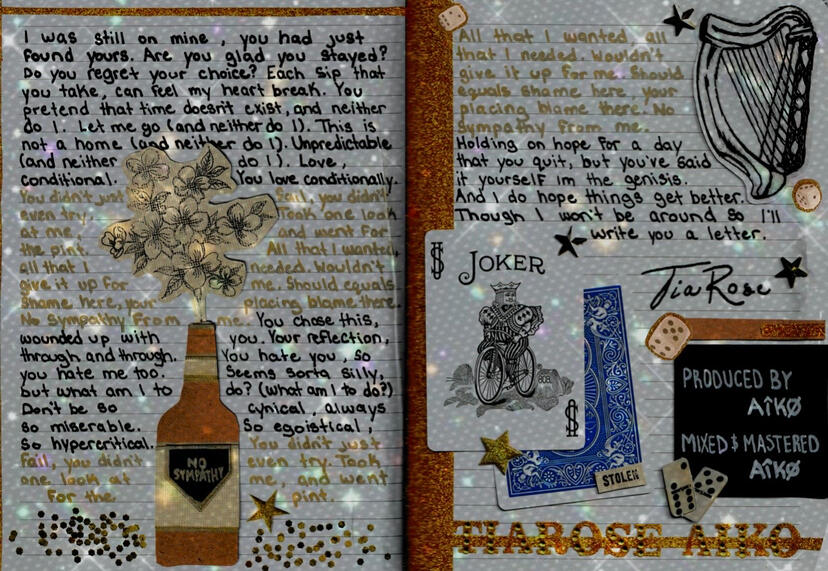 I was still on mine, you had just
found yours. Are you glad you stayed?
Do you regret your choice? Each sip that
you take, can feel my heart break. You
pretend that time doesn't exist, and neither
do I. Let me go (and neither do I). This is
not a home (and neither do I). Unpredictable
(and neither do I). Love,
conditional. You love conditionally.
You didn't just fail, you didn't
even try. Took one look
at me, and went for
the pint. All that I wanted,
all that I needed. Wouldn't
give it up for me. Should equals
shame here, your placing blame there.
No sympathy from me. You chose this,
wounded up with you. Your reflection,
through and through. You hate you, so
you hate me too. Seems sorta silly,
but what am I to do? (what am I to do?)
Don't be so cynical, always
so miserable. So egoistical,
so hypercritical. You didn't just
fail, you didn't even try. Took
one look at me, and went
for the pint.
NO
SYMPATHY
All that I wanted, all
that I needed. Wouldn't
give it up for me. Should
equals shame here, your
placing blame there. No
sympathy from me.
Holding on hope for a day
that you quit, but you've said
it yourself im the genisis.
And I do hope things get better.
Though I won't be around so I'll
write you a letter.
TiaRose
$ JOKER
808
$
STOLEN
PRODUCED BY
AÏKØ
MIXED $ MASTERED
AÏKØ
TIAROSE AIKO